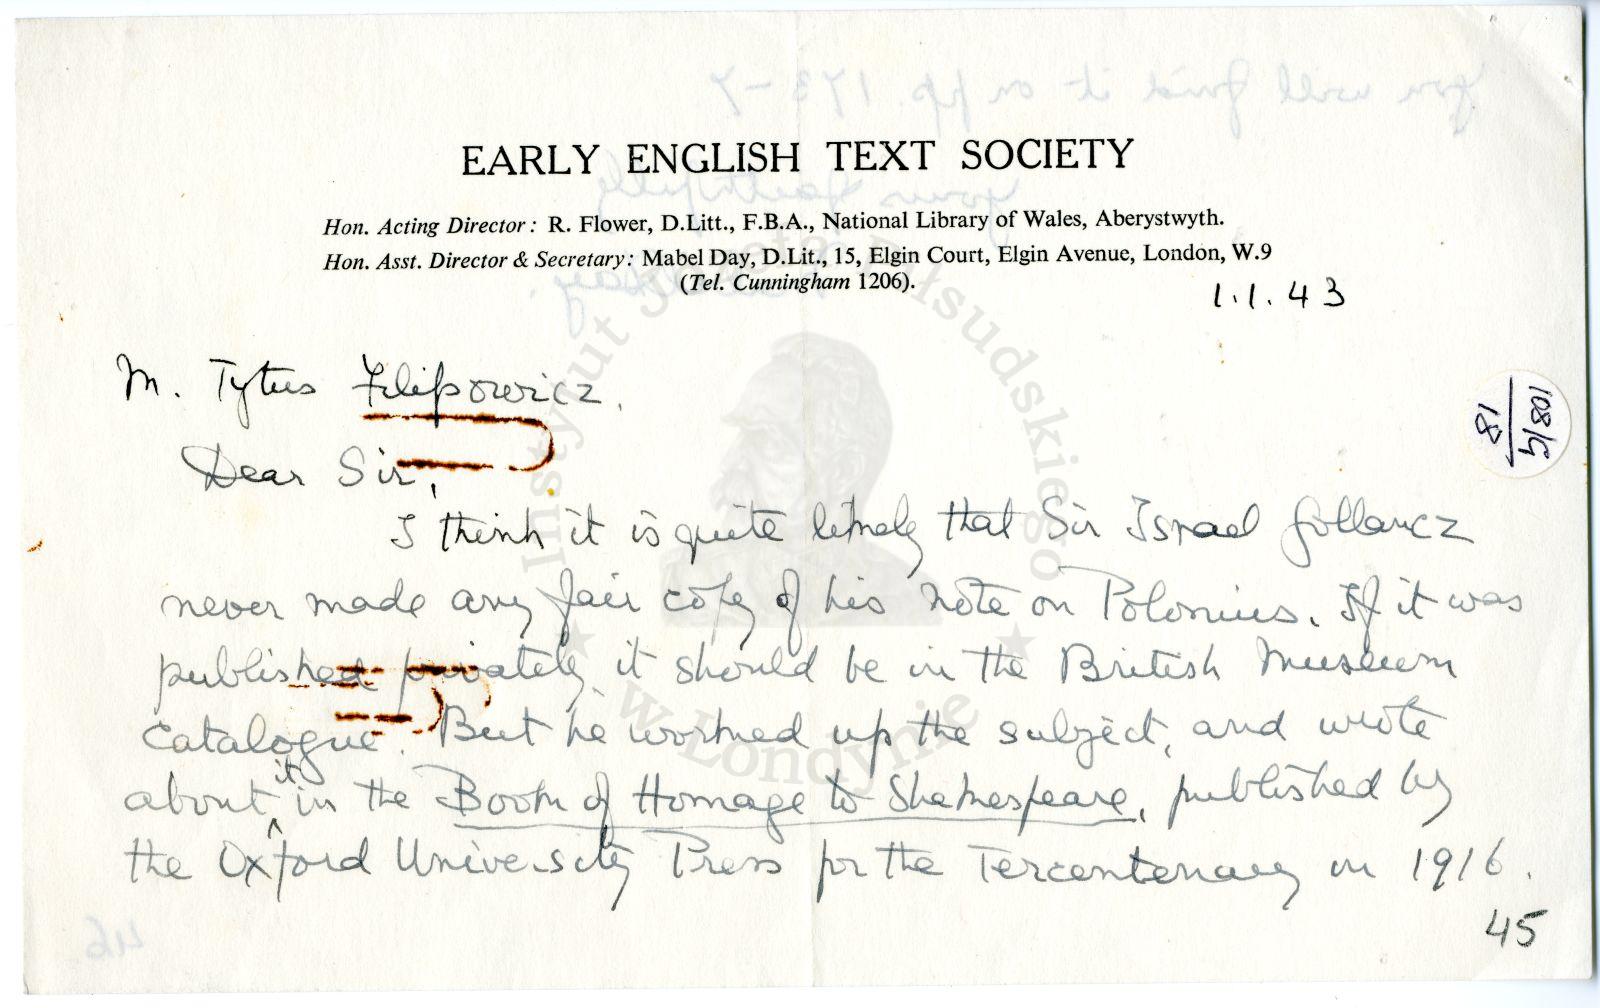 EARLY ENGLISH TEXT SOCIETY
Hon. Acting Director: R. Flower, D.Litt., F.B.A., National Library of Wales, Aberystwyth.
Hon. Asst. Director & Secretary: Mabel Day, D.Lit., 15, Elgin Court, Elgin Avenue, London, W.9
(Tel. Cunningham 1206).
1.1.43
M. Tytus Filipowicz.
Dear Sir,
I think it is quite likely that Sir Israel Gollancz
never made any fair copy of his note on Polonius. If it was
published privately, it should be in the British Museum
catalogue. But he worked up the subject, and wrote
about it in the Book of Homage to Shakespeare, published by
the Oxford University Press for the Tercentenary in 1916.
45
108/5
18
Instytut Józefa Piłsudskiego
w Londynie
You will find it on pp. 173-7
Yours faithfully
M. Day.
46